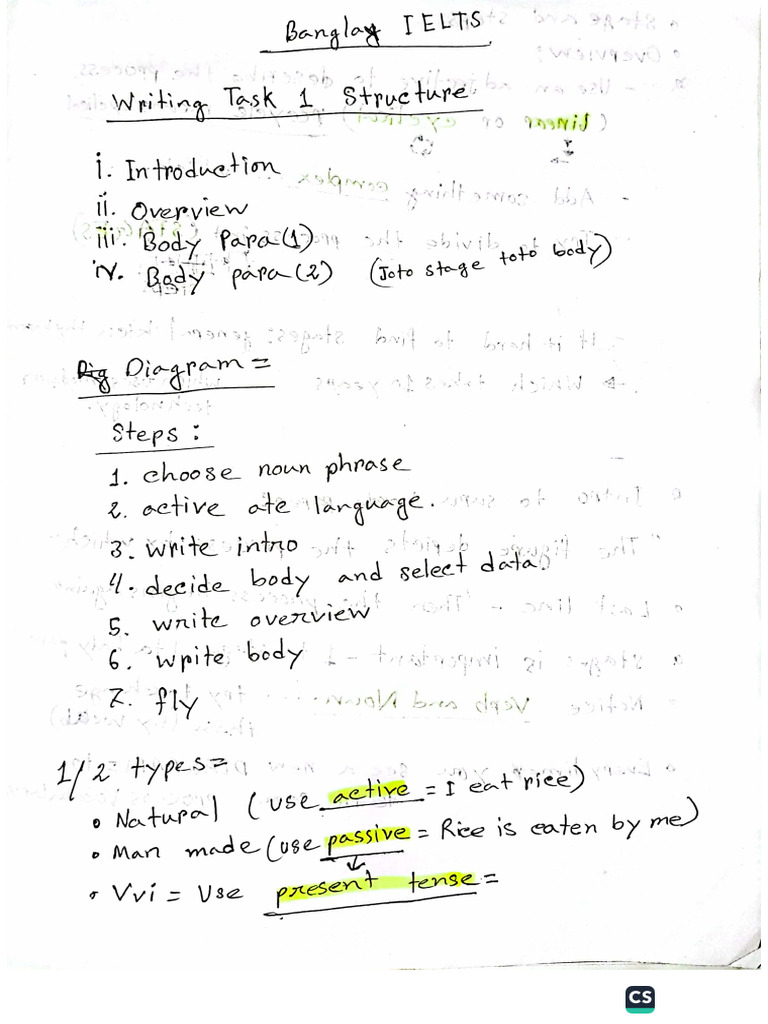 Banglay IELTS
Writing Task 1 Structure
i. Introduction
ii. Overview
iii. Body Para(1)
iv. Body para(2) (Joto stage toto body)
Dig Diagram =
Steps :
1. choose noun phrase
2. active ate language.
3. write intro
4. decide body and select data.
5. write overview
6. write body
7. fly
1/2 types=
• Natural (use active = I eat rice)
• Man made (use passive = Rice is eaten by me)
• Vvi = Use present tense =
CS